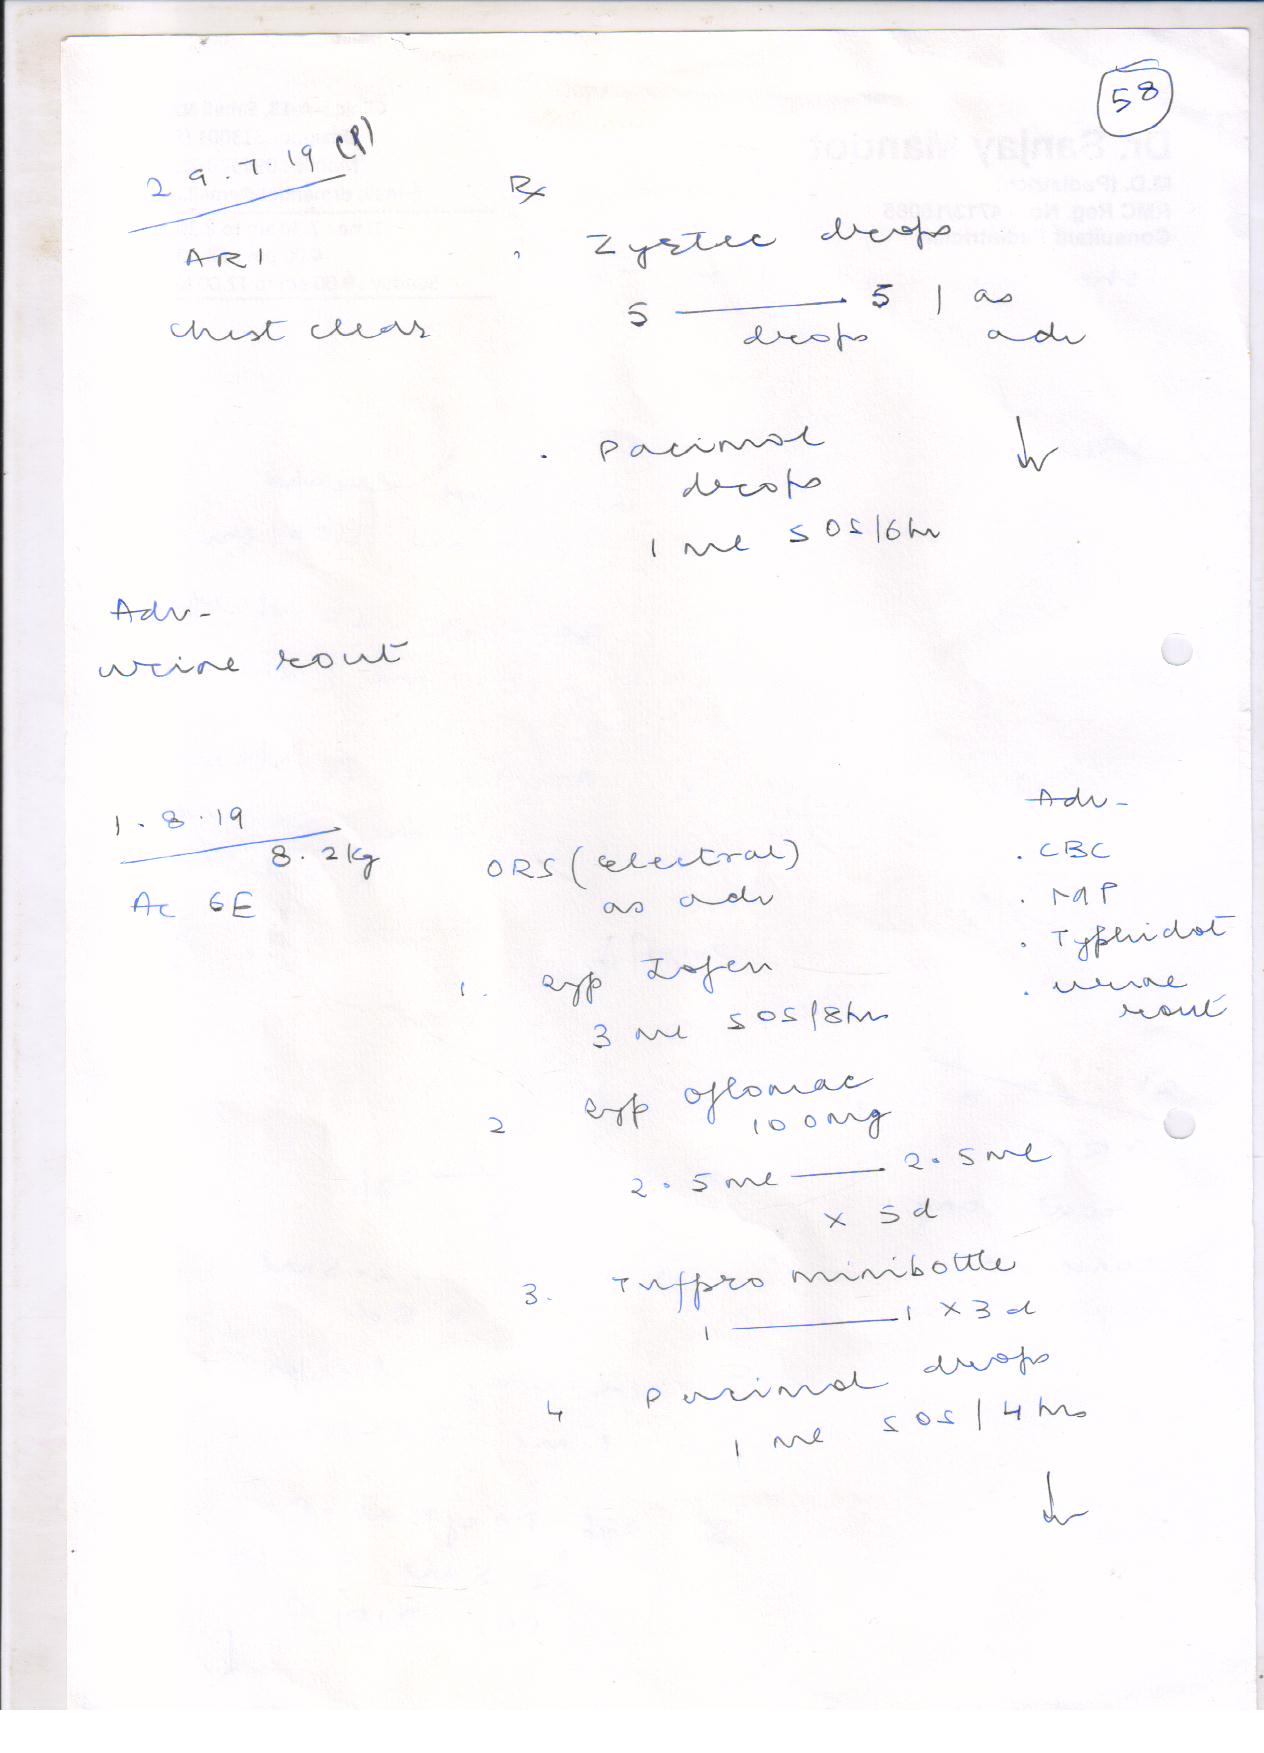 58
29.7.19 (P)
ARI
chest clear
Rx
. Zyrtec drops
5 —— 5 | as
drops adv
. Pacimol
drops
1 ml SOS/6hr
Adv-
urine rout
1.8.19
8.2kg
Ac GE
ORS (electral)
as adv
1. Syp Zofen
3 ml SOS/8hrs
2 Syp oflomac
100mg
2.5ml —— 2.5ml
x 5d
3. Tufpro minibottle
1 —— 1 x 3d
4 Pacimol drops
1 ml SOS/4hrs
Adv-
. CBC
. MP
. Typhidot
. urine
rout